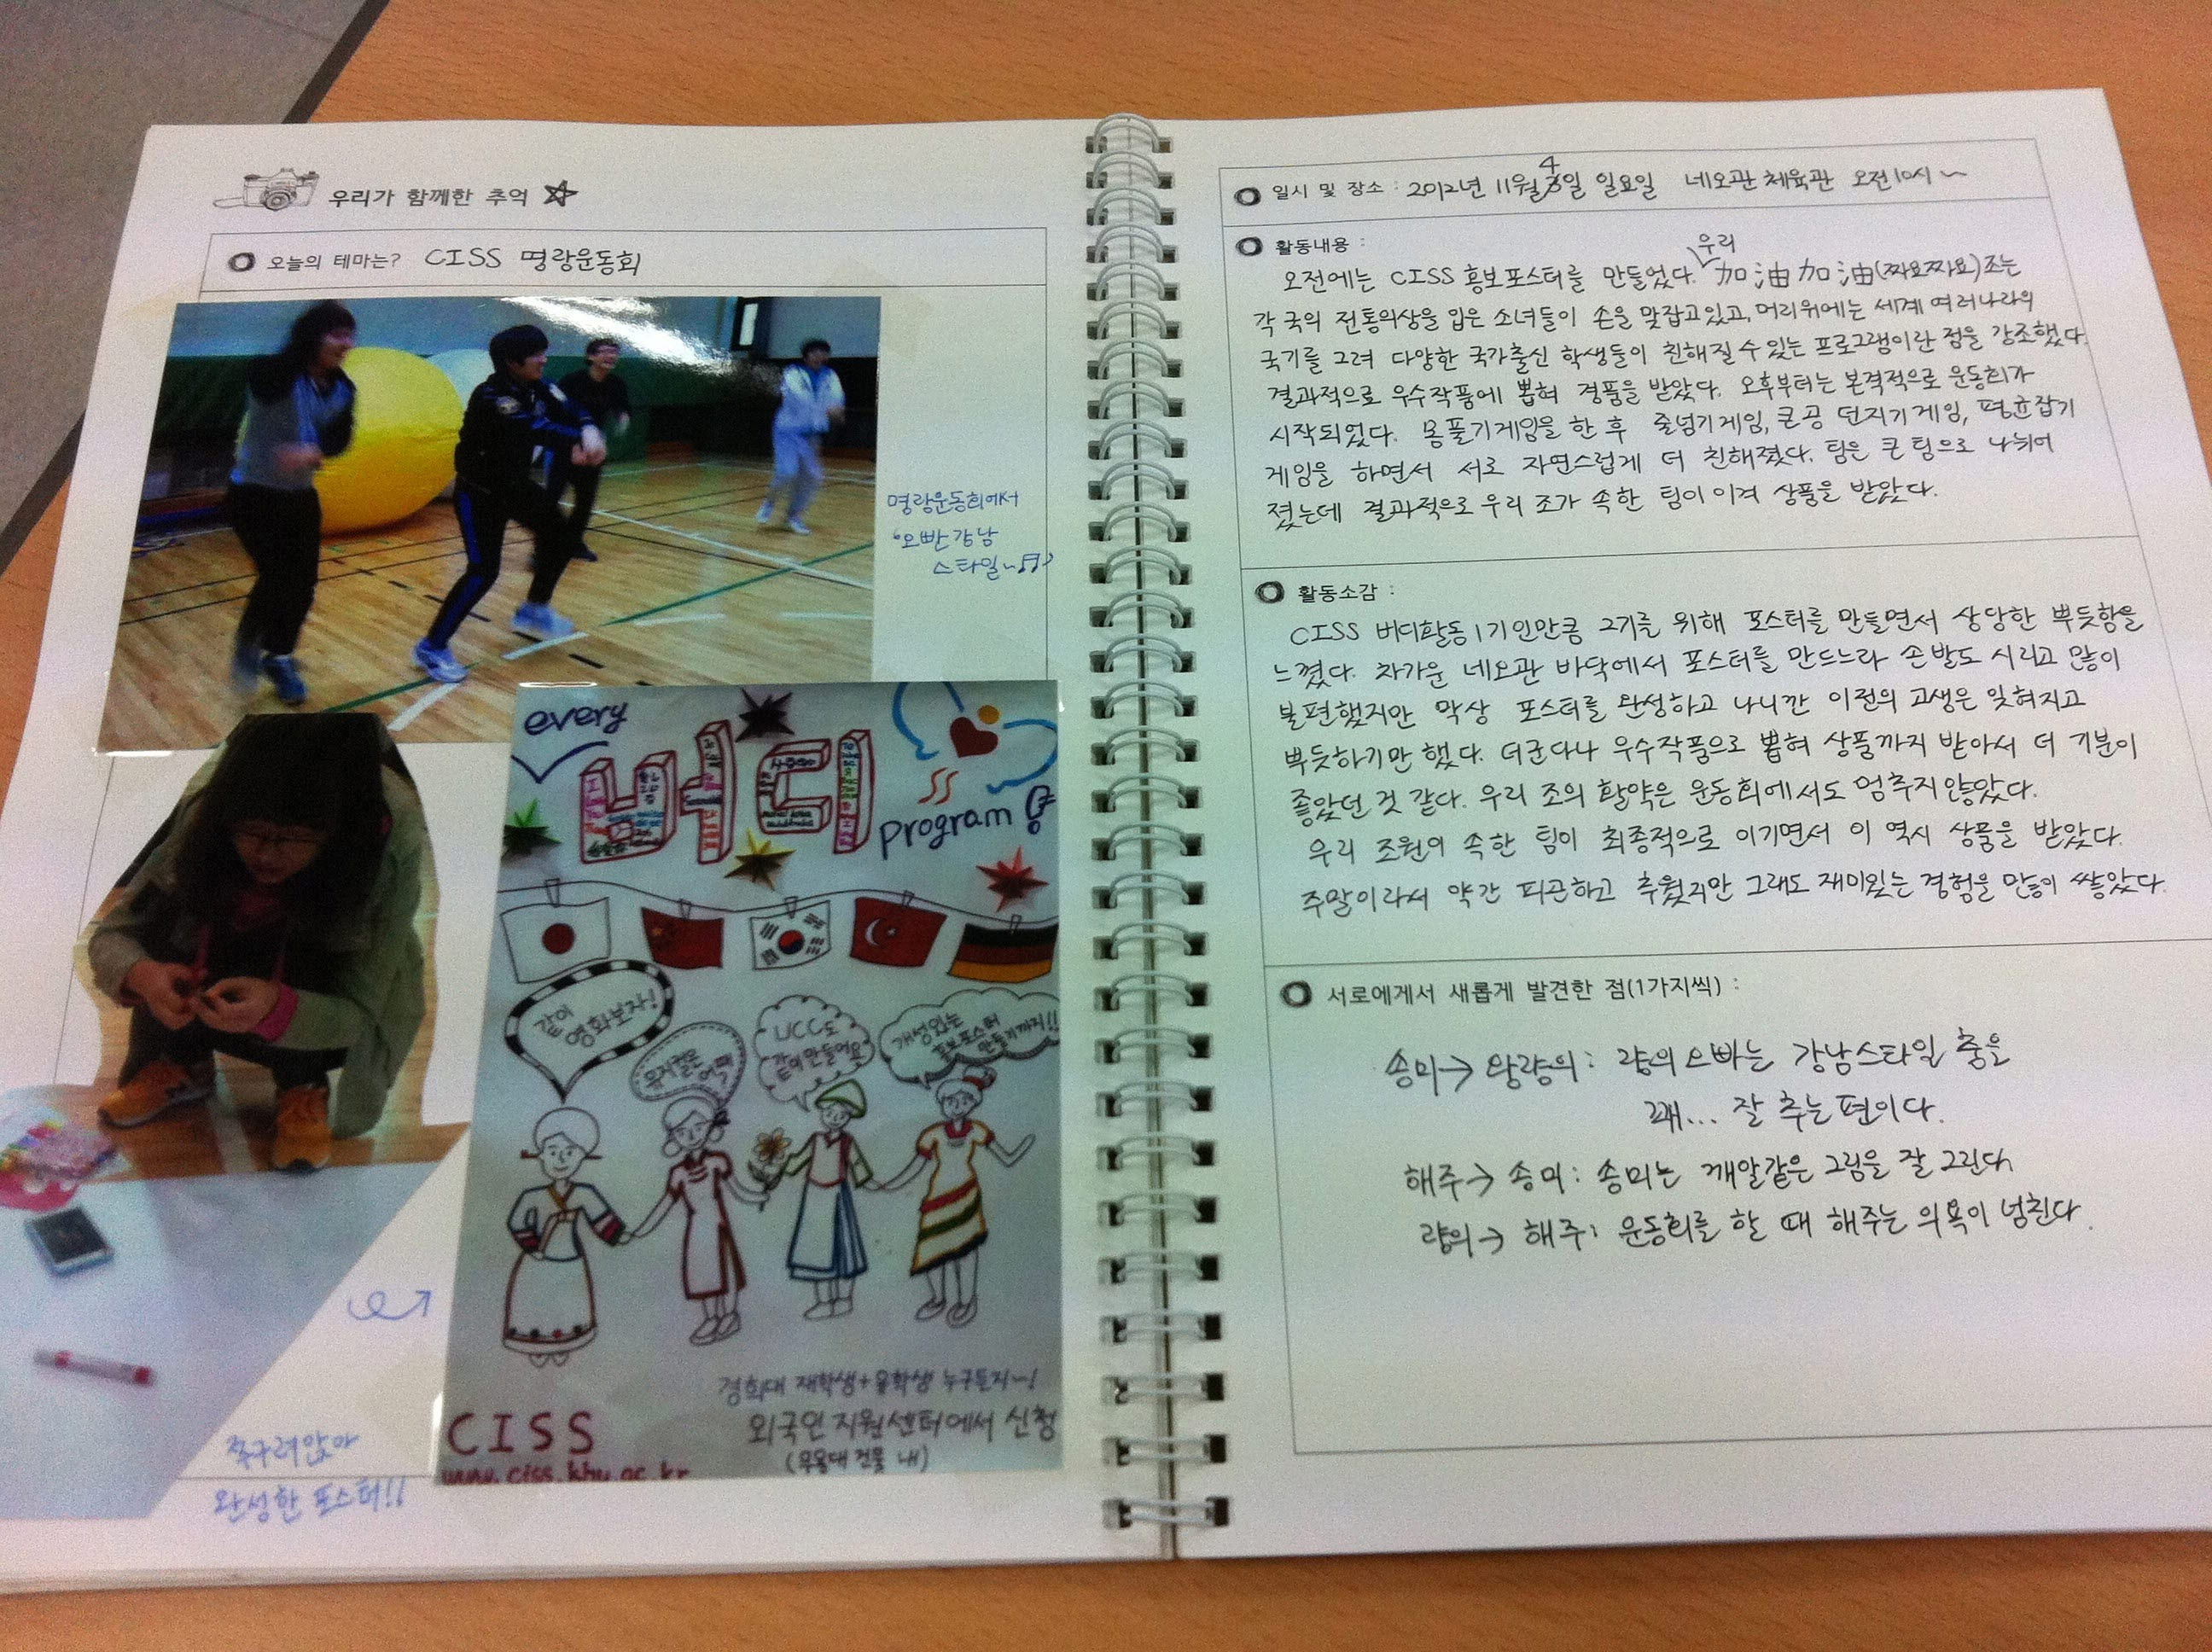 우리가 함께한 추억
오늘의 테마는? CISS 명랑운동회
명랑운동회에서
'오빤 강남
스타일~♬'
every
버디
program
같이
영화보자!
뮤지컬은
UCC도
같이 만들어요
개성있는
홍보포스터
만들기까지!!
경희대 재학생+유학생 누구든지~!
CISS
외국인지원센터에서 신청
www.ciss.khu.ac.kr
쭈구려앉아
완성한 포스터!!
일시 및 장소 : 2012년 11월 4일 일요일 네오관 체육관 오전10시~
활동내용 :
우리
오전에는 CISS 홍보포스터를 만들었다. 加油加油(짜요짜요)조는
각 국의 전통의상을 입은 소녀들이 손을 맞잡고있고, 머리위에는 세계 여러나라의
국기를 그려 다양한 국가출신 학생들이 친해질 수 있는 프로그램이란 점을 강조했다.
결과적으로 우수작품에 뽑혀 경품을 받았다. 오후부터는 본격적으로 운동회가
시작되었다. 몸풀기게임을 한 후 줄넘기게임, 큰공 던지기게임, 평균잡기
게임을 하면서 서로 자연스럽게 더 친해졌다. 팀은 큰 팀으로 나뉘어
졌는데 결과적으로 우리 조가 속한 팀이 이겨 상품을 받았다.
활동소감 :
CISS 버디활동 1기인만큼 2기를 위해 포스터를 만들면서 상당한 뿌듯함을
느꼈다. 차가운 네오관 바닥에서 포스터를 만드느라 손발도 시리고 많이
불편했지만 막상 포스터를 완성하고 나니깐 이전의 고생은 잊혀지고
뿌듯하기만 했다. 더군다나 우수작품으로 뽑혀 상품까지 받아서 더 기분이
좋았던 것 같다. 우리 조의 활약은 운동회에서도 멈추지않았다.
우리 조원이 속한 팀이 최종적으로 이기면서 이 역시 상품을 받았다.
주말이라서 약간 피곤하고 추웠지만 그래도 재미있는 경험을 많이 쌓았다.
서로에게서 새롭게 발견한 점(1가지씩) :
송미→ 왕량의: 량의오빠는 강남스타일 춤을
꽤... 잘 추는 편이다.
해주→ 송미: 송미는 깨알같은 그림을 잘 그린다
량의→ 해주: 운동회를 할 때 해주는 의욕이 넘친다.